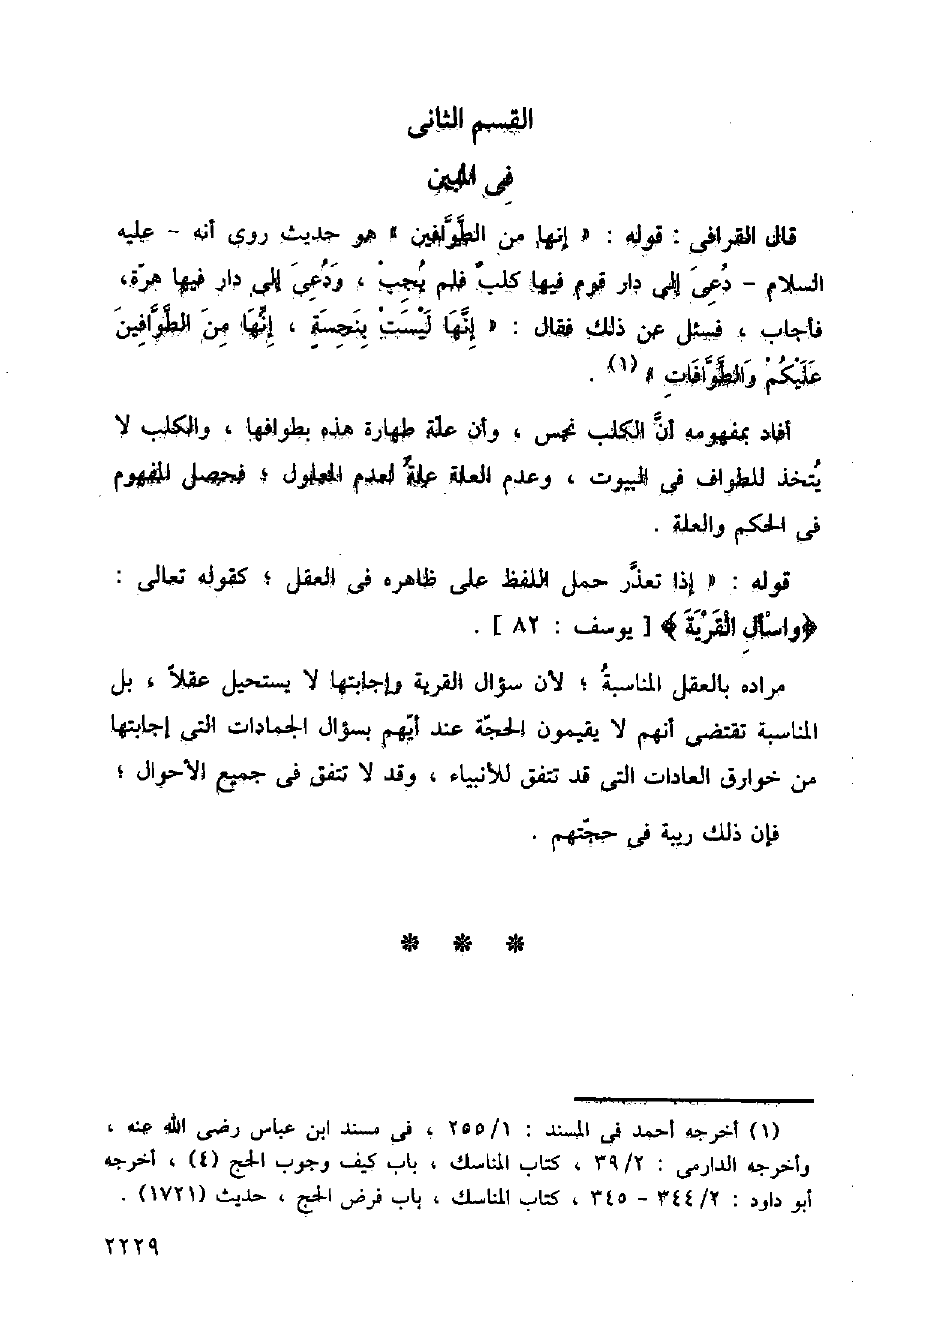 القسم الثانى
فى المبين
قال القرافى : قوله : « إنها من الطَّوَّافين » هو حديث روى أنه - عليه
السلام - دُعِىَ إلى دار قوم فيها كلبٌ فلم يُجِبْ ، ودُعِىَ إلى دار فيها هرّة،
فأجاب ، فسئل عن ذلك فقال : « إِنَّهَا لَيْسَتْ بِنَجِسَةٍ ، إِنَّهَا مِنَ الطَّوَّافِينَ
عَلَيْكُمْ وَالطَّوَّافَاتِ » (١) .
أفاد بمفهومه أنَّ الكلب نجس ، وأن علّة طهارة هذه بطوافها ، والكلب لا
يُتخذ للطواف فى البيوت ، وعدم العلة علةٌ لعدم المعلول ؛ فحصل المفهوم
فى الحكم والعلة .
قوله : « إذا تعذَّر حمل اللفظ على ظاهره فى العقل ؛ كقوله تعالى :
﴿واسْأَلِ الْقَرْيَةَ ﴾ [ يوسف : ٨٢ ] .
مراده بالعقل المناسبةُ ؛ لأن سؤال القرية وإجابتها لا يستحيل عقلاً ، بل
المناسبة تقتضى أنهم لا يقيمون الحجّة عند أبيهم بسؤال الجمادات التى إجابتها
من خوارق العادات التى قد تتفق للأنبياء ، وقد لا تتفق فى جميع الأحوال ؛
فإن ذلك ريبة فى حجّتهم .
* * *
(١) أخرجه أحمد فى المسند : ٢٥٥/١ ، فى مسند ابن عباس رضى الله عنه ،
وأخرجه الدارمى : ٣٩/٢ ، كتاب المناسك ، باب كيف وجوب الحج (٤) ، أخرجه
أبو داود : ٣٤٤/٢ - ٣٤٥ ، كتاب المناسك ، باب فرض الحج ، حديث (١٧٢١) .
٢٢٢٩